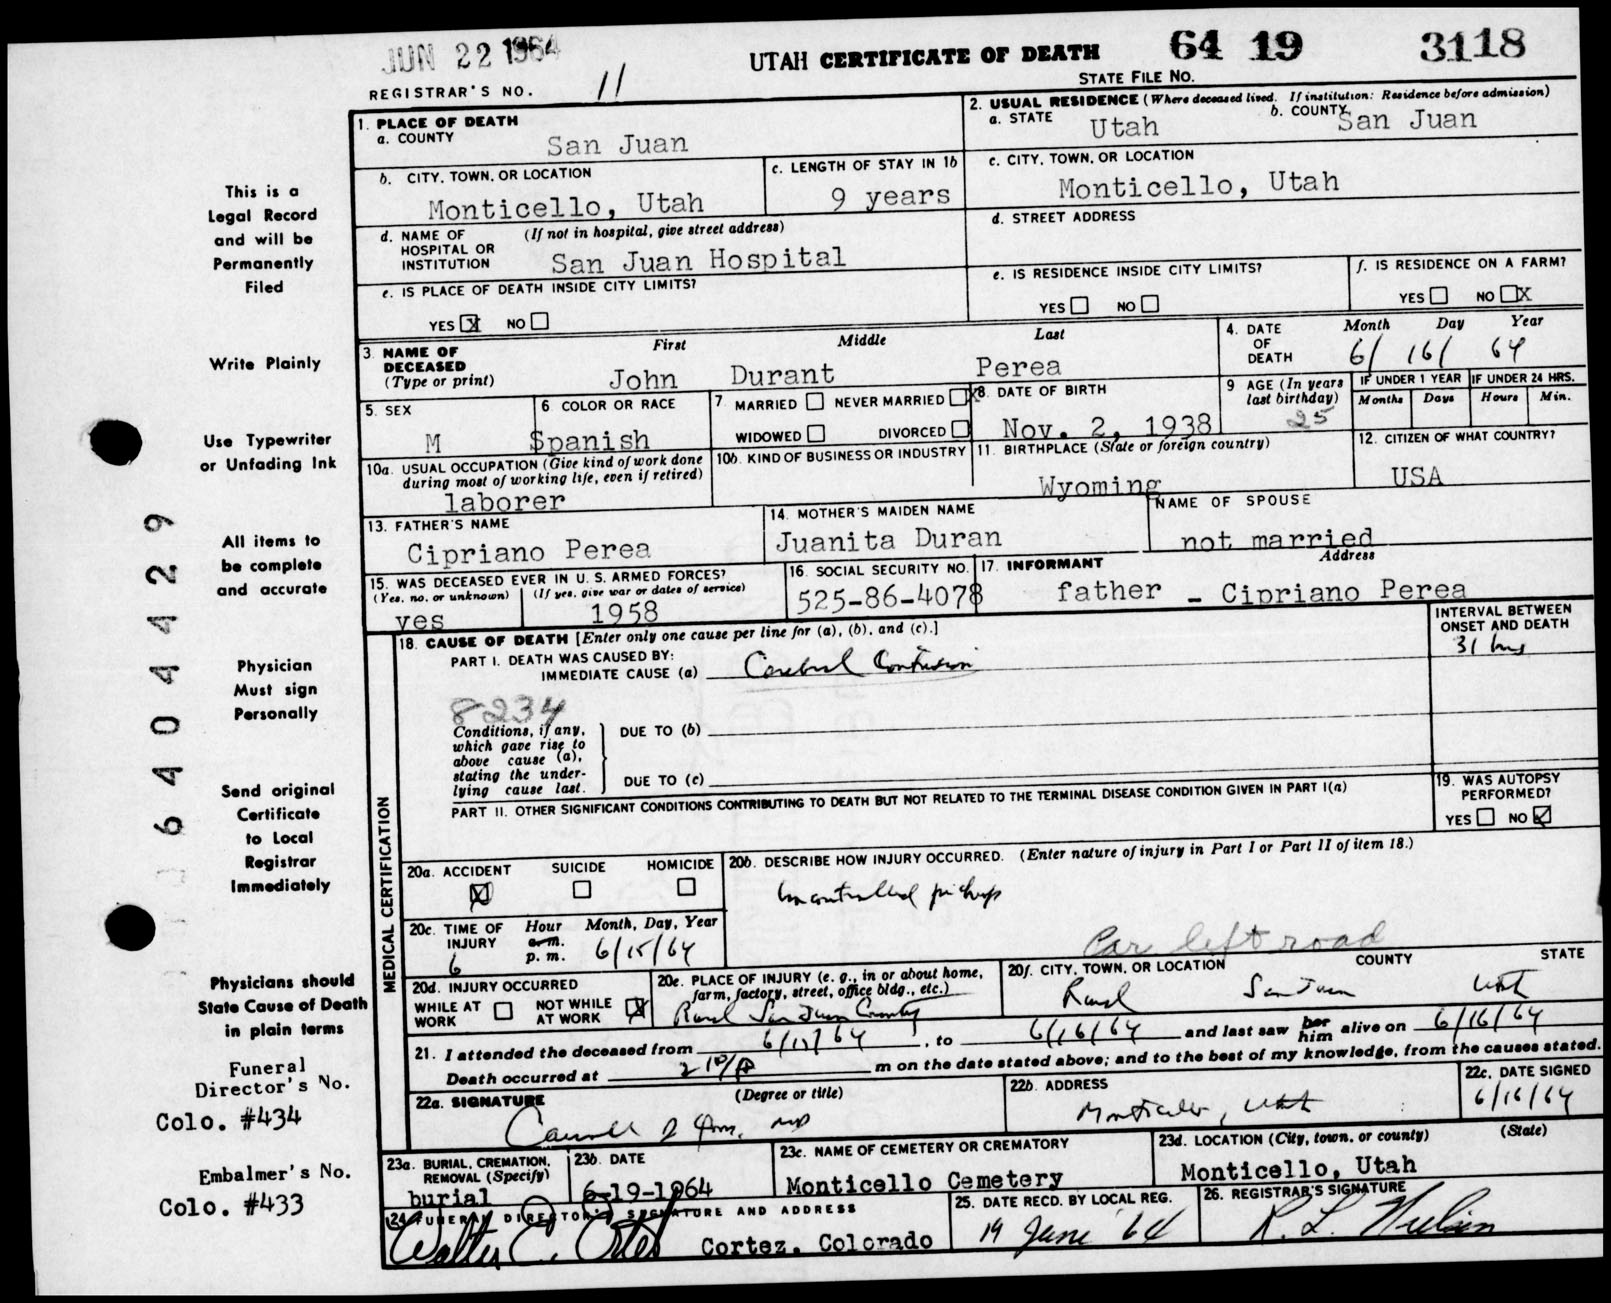 JUN 22 1964
UTAH CERTIFICATE OF DEATH 64 19 3118
STATE FILE No.
REGISTRAR'S NO. 11
1. PLACE OF DEATH
a. COUNTY San Juan
2. USUAL RESIDENCE (Where deceased lived. If institution: Residence before admission)
a. STATE Utah b. COUNTY San Juan
b. CITY, TOWN, OR LOCATION Monticello, Utah
c. LENGTH OF STAY IN 1b 9 years
c. CITY, TOWN, OR LOCATION Monticello, Utah
d. NAME OF HOSPITAL OR INSTITUTION (If not in hospital, give street address) San Juan Hospital
d. STREET ADDRESS
e. IS PLACE OF DEATH INSIDE CITY LIMITS?
YES X NO
e. IS RESIDENCE INSIDE CITY LIMITS?
YES NO
f. IS RESIDENCE ON A FARM?
YES NO X
3. NAME OF DECEASED (Type or print)
First Middle Last
John Durant Perea
4. DATE OF DEATH Month Day Year
6/ 16/ 64
5. SEX M
6 COLOR OR RACE Spanish
7. MARRIED NEVER MARRIED X
WIDOWED DIVORCED
8. DATE OF BIRTH Nov. 2, 1938
9 AGE (In years last birthday) 25
IF UNDER 1 YEAR Months Days
IF UNDER 24 HRS. Hours Min.
10a. USUAL OCCUPATION (Give kind of work done during most of working life, even if retired) laborer
10b. KIND OF BUSINESS OR INDUSTRY
11. BIRTHPLACE (State or foreign country) Wyoming
12. CITIZEN OF WHAT COUNTRY? USA
13. FATHER'S NAME Cipriano Perea
14. MOTHER'S MAIDEN NAME Juanita Duran
NAME OF SPOUSE not married
15. WAS DECEASED EVER IN U. S. ARMED FORCES?
(Yes, no, or unknown) (If yes, give war or dates of service)
yes 1958
16. SOCIAL SECURITY NO. 525-86-4078
17. INFORMANT Address
father - Cipriano Perea
MEDICAL CERTIFICATION
18. CAUSE OF DEATH [Enter only one cause per line for (a), (b), and (c).]
INTERVAL BETWEEN ONSET AND DEATH
PART I. DEATH WAS CAUSED BY:
IMMEDIATE CAUSE (a) Cerebral Contusion 31 hrs
8234
Conditions, if any, which gave rise to above cause (a), stating the underlying cause last.
DUE TO (b)
DUE TO (c)
PART II. OTHER SIGNIFICANT CONDITIONS CONTRIBUTING TO DEATH BUT NOT RELATED TO THE TERMINAL DISEASE CONDITION GIVEN IN PART I(a)
19. WAS AUTOPSY PERFORMED?
YES NO
20a. ACCIDENT SUICIDE HOMICIDE
20b. DESCRIBE HOW INJURY OCCURRED. (Enter nature of injury in Part I or Part II of item 18.)
Uncontrolled pickup
Car left road
20c. TIME OF INJURY Hour a.m. p.m. Month, Day, Year
6 6/15/64
20d. INJURY OCCURRED
WHILE AT WORK NOT WHILE AT WORK
20e. PLACE OF INJURY (e. g., in or about home, farm, factory, street, office bldg., etc.)
Rural San Juan County
20f. CITY, TOWN, OR LOCATION COUNTY STATE
Rural San Juan Utah
21. I attended the deceased from 6/15/64, to 6/16/64 and last saw her him alive on 6/16/64
Death occurred at m on the date stated above; and to the best of my knowledge, from the causes stated.
22a. SIGNATURE (Degree or title)
MD
22b. ADDRESS Monticello, Utah
22c. DATE SIGNED 6/16/64
23a. BURIAL, CREMATION, REMOVAL (Specify) burial
23b. DATE 6-19-1964
23c. NAME OF CEMETERY OR CREMATORY Monticello Cemetery
23d. LOCATION (City, town, or county) (State) Monticello, Utah
24. FUNERAL DIRECTOR'S SIGNATURE AND ADDRESS
Walter E. Ertel Cortez, Colorado
25. DATE RECD. BY LOCAL REG. 19 June 64
26. REGISTRAR'S SIGNATURE
R. L. Nielson
This is a
Legal Record
and will be
Permanently
Filed
Write Plainly
Use Typewriter
or Unfading Ink
All items to
be complete
and accurate
Physician
Must sign
Personally
Send original
Certificate
to Local
Registrar
Immediately
Physicians should
State Cause of Death
in plain terms
Funeral
Director's No.
Colo. #434
Embalmer's No.
Colo. #433
6404429